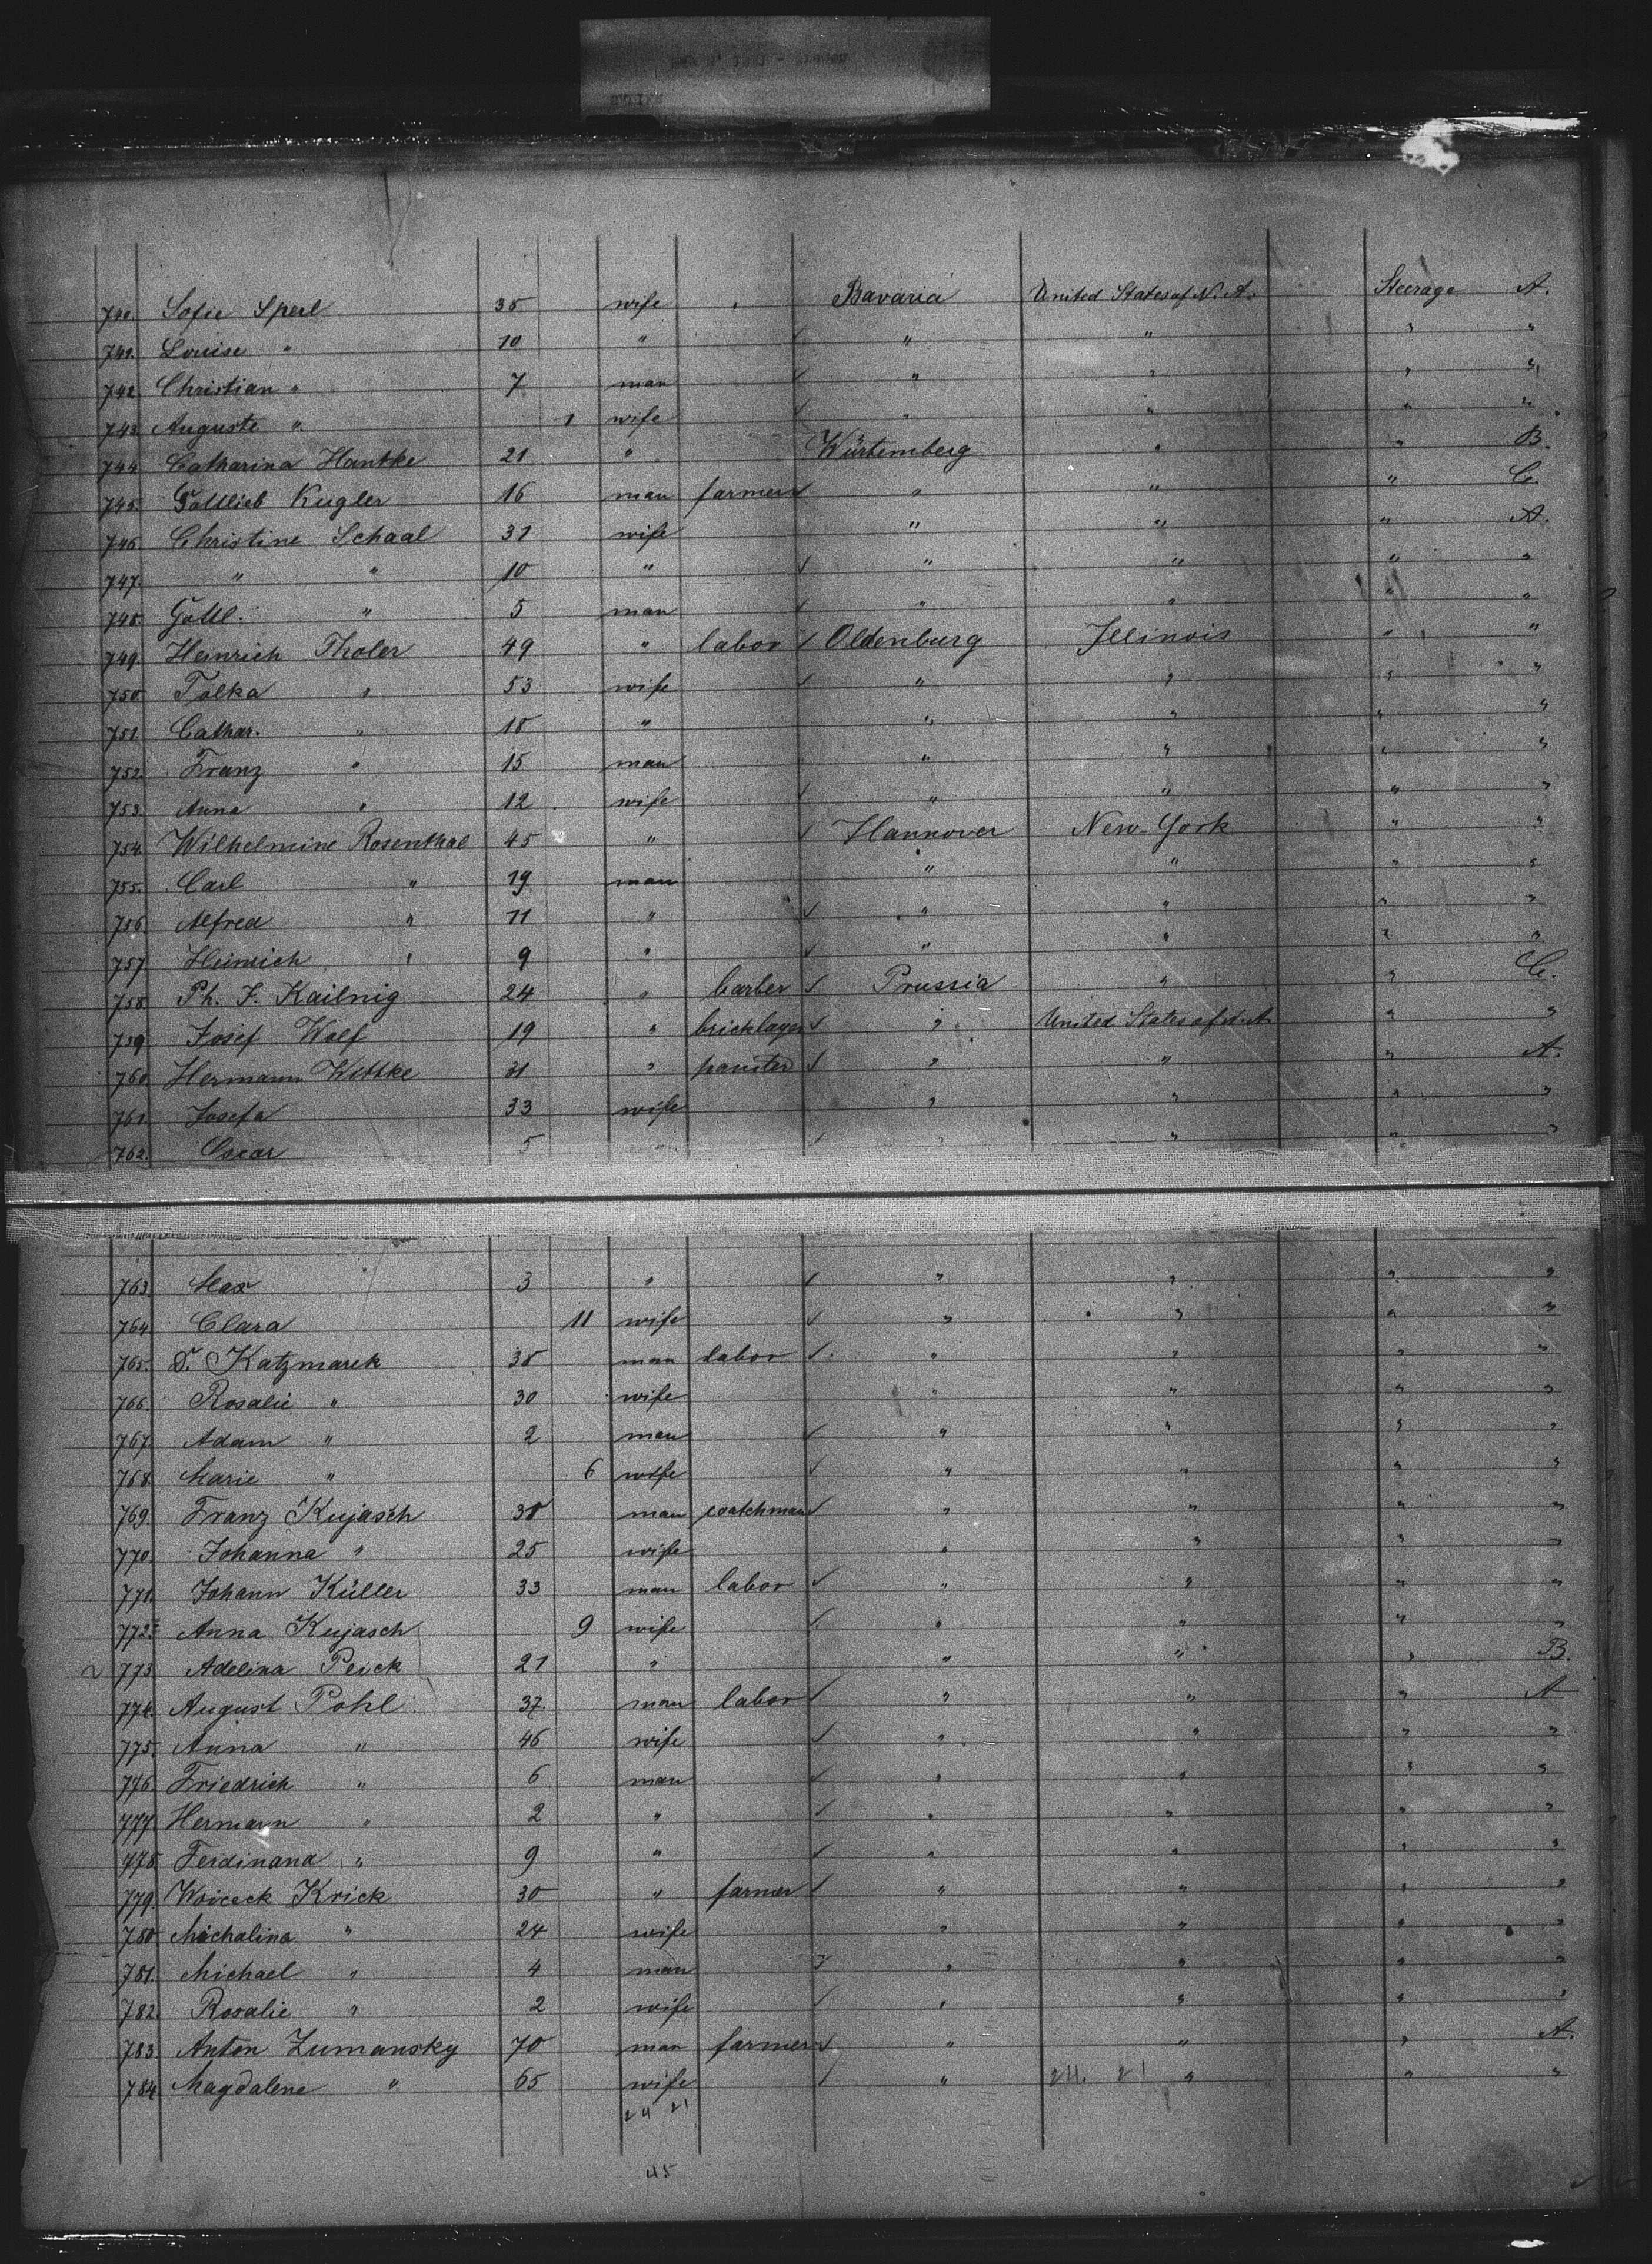 740. Sofie Sperl 35 wife " Bavaria United States of N. A. Steerage A.
741. Louise " 10 " " " " "
742. Christian " 7 man " " " "
743. Auguste " 1 wife " " " "
744. Catharina Hantke 21 " Würtemberg " " B.
745. Gottlieb Kugler 16 man farmer " " " C.
746. Christine Schaal 31 wife " " " A.
747. " " 10 " " " " "
748. Gottl. " 5 man " " " "
749. Heinrich Tholer 49 " labor Oldenburg Illinois " "
750. Talka " 53 wife " " " "
751. Cathar. " 18 " " " " "
752. Franz " 15 man " " " "
753. Anna " 12 wife " " " "
754. Wilhelmine Rosenthal 45 " Hannover New-York " "
755. Carl " 19 man " " " "
756. Alfred " 11 " " " " "
757. Heinrich " 9 " " " " "
758. Ph. F. Kailnig 24 " barber Prussia " " C.
759 Josef Wolf 19 " bricklayer " United States of N. A. " "
760. Hermann Wittke 31 " painter " " " A.
761. Josefa 33 wife " " " "
762. Oscar 5 " " " " "
763. Max 3 " " " " "
764. Clara 11 wife " " " "
765. D. Katzmarek 38 man labor " " " "
766. Rosalie " 30 wife " " " "
767. Adam " 2 man " " " "
768. Marie " 6 wife " " " "
769. Franz Kujasch 38 man coatchman " " " "
770. Johanna " 25 wife " " " "
771. Johann Küller 33 man labor " " " "
772. Anna Kujasch 9 wife " " " "
773 Adelina Peick 21 " " " " B.
774. August Pohl 37. man labor " " " A
775. Anna " 46 wife " " " "
776. Friedrich " 6 man " " " "
777. Hermann " 2 " " " " "
778. Ferdinand " 9 " " " " "
779. Woiceck Krick 30 " farmer " " " "
780 Michalina " 24 wife " " " "
781. Michael " 4 man " " " "
782. Rosalie " 2 wife " " " "
783. Anton Zumansky 70 man farmer " " " A.
784. Magdalene " 65 wife " 24. 21 " " "
24 21
45